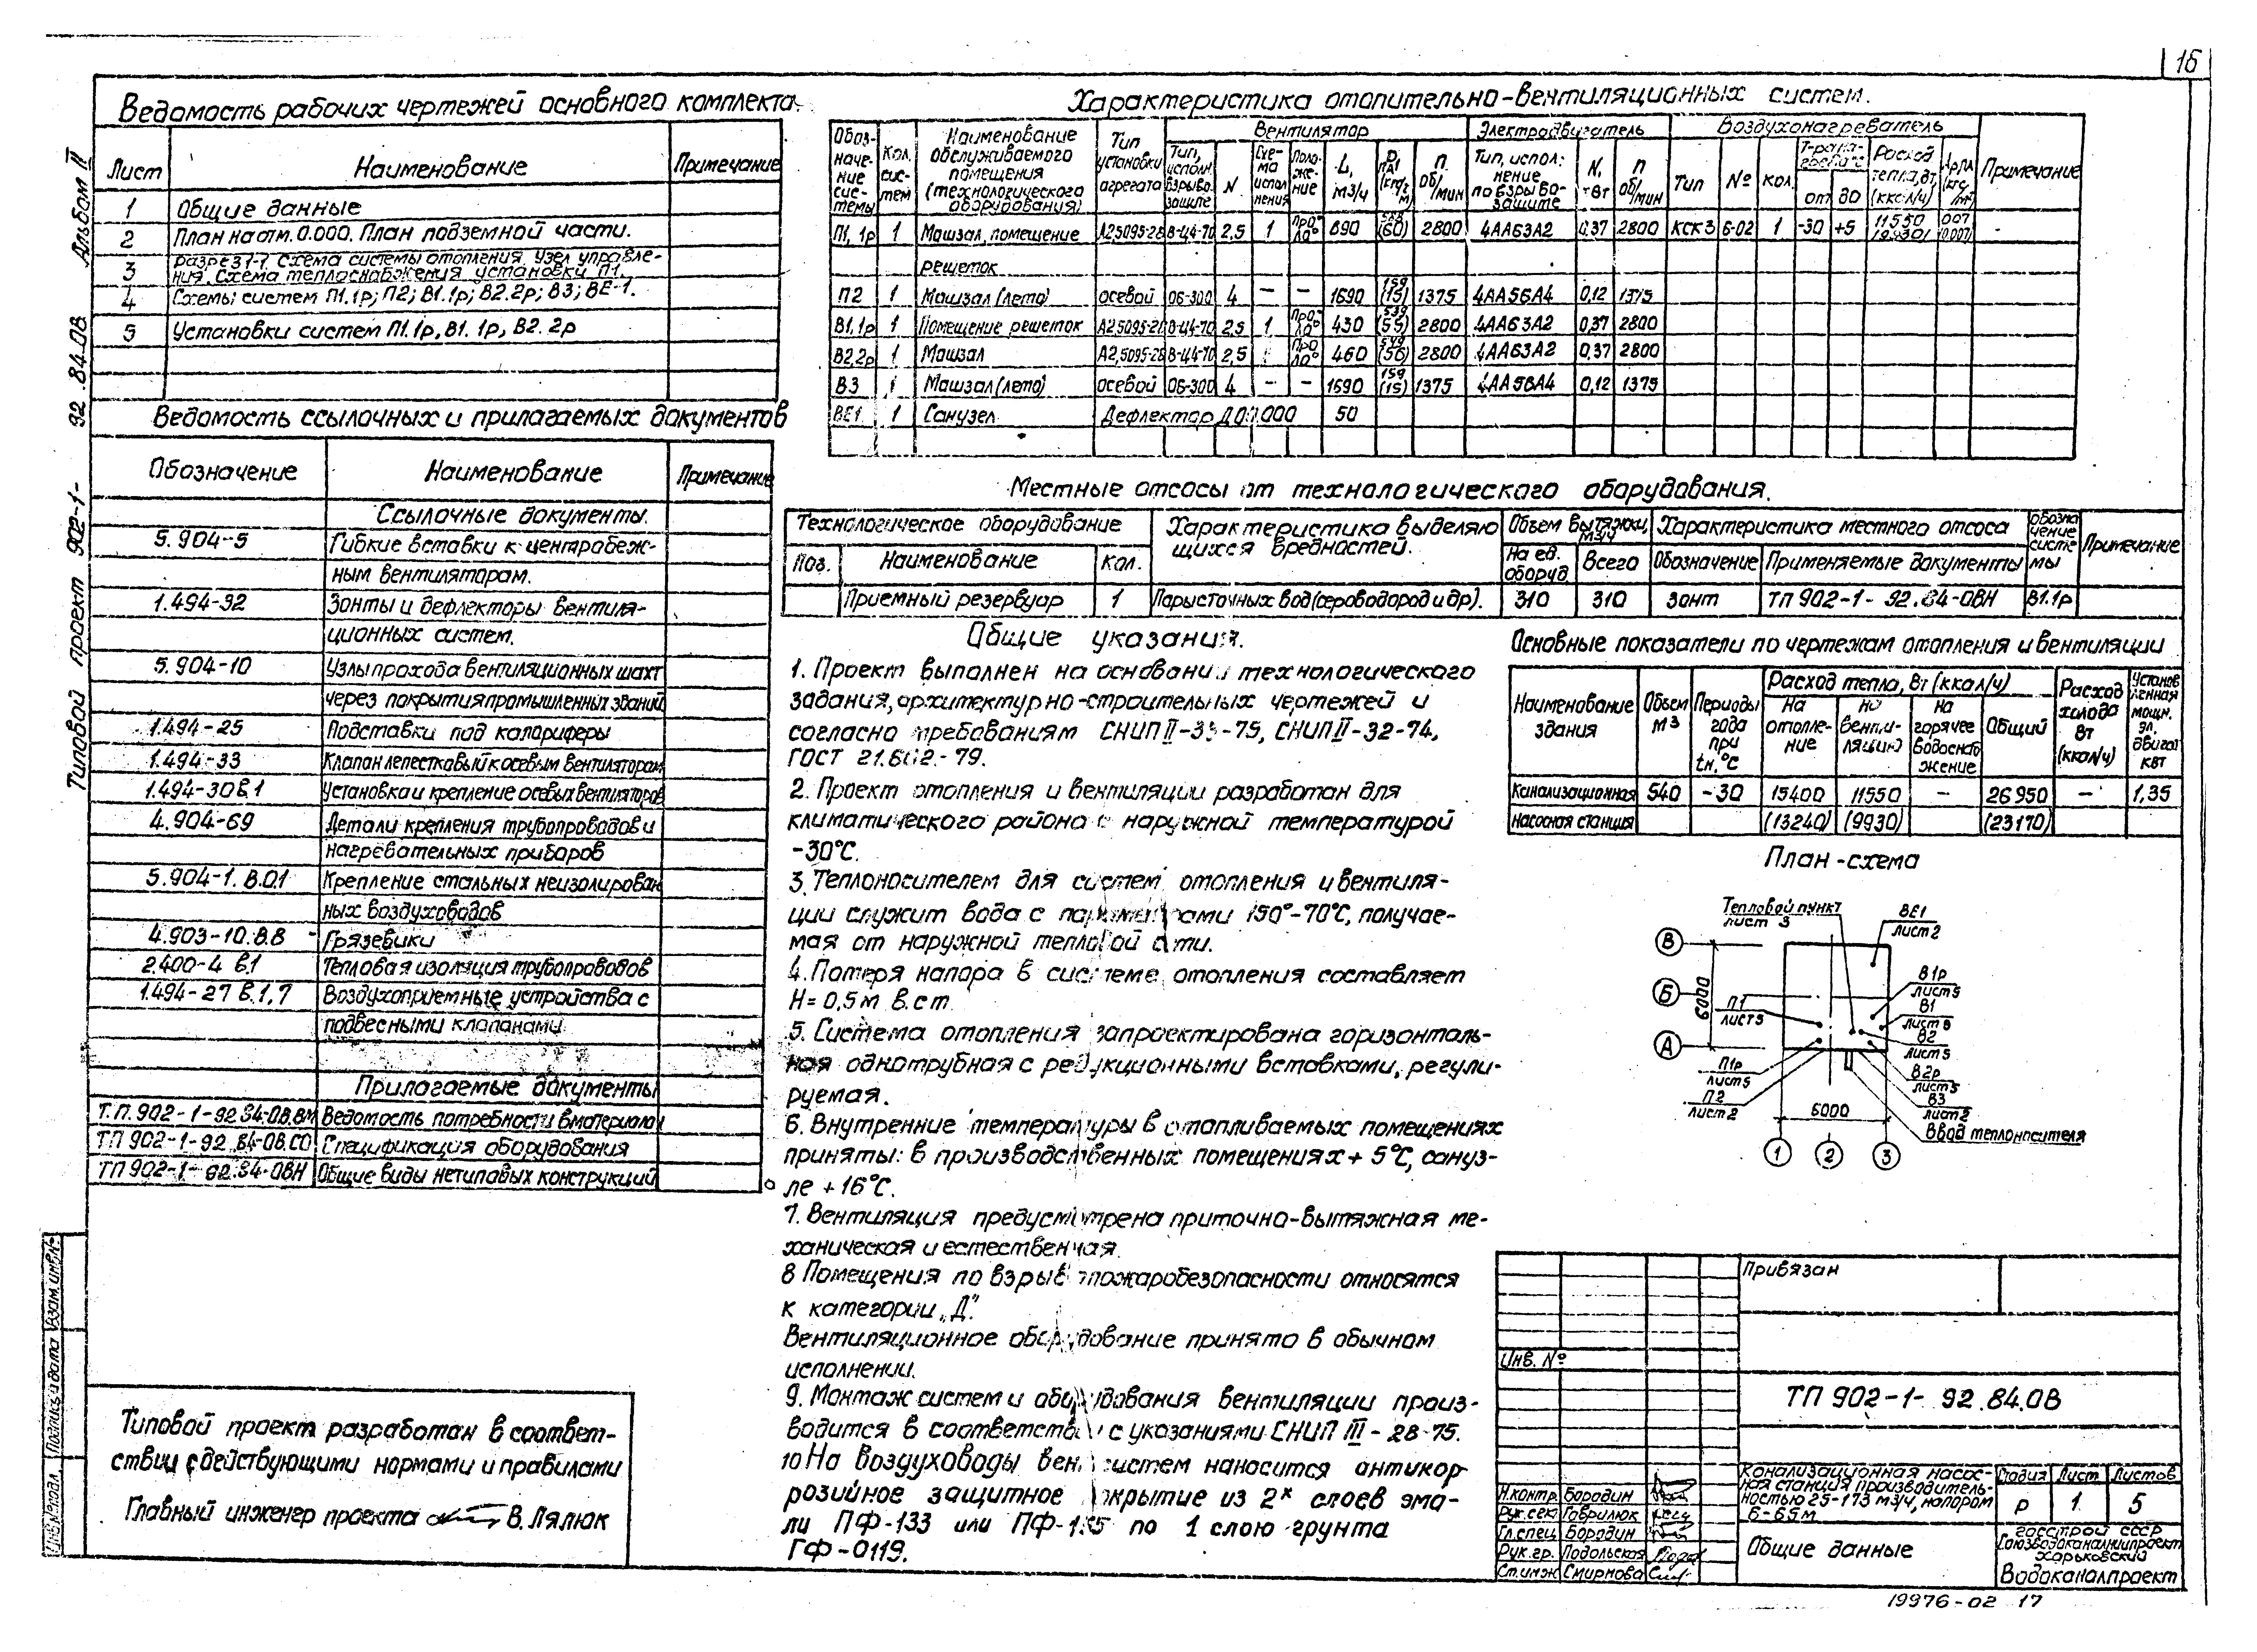 16
Альбом II
Типовой проект 902-1-92.84.ОВ
Ведомость рабочих чертежей основного комплекта
Лист Наименование Примечание
1 Общие данные
2 План на отм. 0.000. План подземной части.
3 Разрез 1-1. Схема системы отопления. Узел управле-
ния. Схема теплоснабжения установки П1.
4 Схемы систем П1.1р; П2; В1.1р; В2.2р; В3; ВЕ-1.
5 Установки систем П1.1р, В1.1р, В2.2р
Ведомость ссылочных и прилагаемых документов
Обозначение Наименование Примечание
Ссылочные документы.
5.904-5 Гибкие вставки к центробеж-
ным вентиляторам.
1.494-32 Зонты и дефлекторы вентиля-
ционных систем.
5.904-10 Узлы прохода вентиляционных шахт
через покрытия промышленных зданий
1.494-25 Подставки под калориферы
1.494-33 Клапан лепестковый к осевым вентиляторам
1.494-30 В.1 Установка и крепление осевых вентиляторов
4.904-69 Детали крепления трубопроводов и
нагревательных приборов
5.904-1. В.0.1 Крепление стальных неизолирован
ных воздуховодов
4.903-10.В.8 Грязевики
2.400-4 В.1 Тепловая изоляция трубопроводов
1.494-27 В.1,7 Воздухоприемные устройства с
подвесными клапанами
Прилагаемые документы
Т.П.902-1-92.84-ОВ.ВМ Ведомость потребности в материалах
ТП 902-1-92.84-ОВ.СО Спецификация оборудования
ТП 902-1-92.84-ОВН Общие виды нетиповых конструкций
Типовой проект разработан в соответ-
ствии с действующими нормами и правилами
Главный инженер проекта В. Лялюк
Характеристика отопительно-вентиляционных систем.
Обоз-наче-ние сис-темы Кол. сис-тем Наименование обслуживаемого помещения (технологического оборудования) Тип установки агрегата Вентилятор Электродвигатель Воздухонагреватель Примечание
Тип, исполн. взрыво-защите N Схе-ма испол нения Поло-же-ние L, м3/ч P, Па (кгс/м²) n об/мин Тип, испол-нение по взрыво-защите N, кВт n об/мин Тип № Кол. Т-ра нагрева °С от до Расход тепла, Вт (ккал/ч)
П1, 1р 1 Машзал, помещение А2,5095-2В В-Ц4-70 2,5 1 ПрО° Л0° 890 588 (60) 2800 4АА63А2 0,37 2800 КСК3 6-02 1 -30 +5 11550 0,07 (0,007) -
решеток
П2 1 Машзал (лето) осевой 06-300 4 — — 1690 159 (15) 1375 4АА56А4 0,12 1375
В1,1р 1 Помещение решеток А2,5095-2В В-Ц4-70 2,5 1 ПрО° Л0° 430 539 (55) 2800 4АА63А2 0,37 2800
В2,2р 1 Машзал А2,5095-2В В-Ц4-70 2,5 1 ПрО Л0° 460 549 (56) 2800 4АА63А2 0,37 2800
В3 1 Машзал (лето) осевой 06-300 4 - - 1690 159 (15) 1375 4АА56А4 0,12 1375
ВЕ1 1 Санузел Дефлектор 50
Местные отсосы от технологического оборудования.
Технологическое оборудование Характеристика выделяю щихся вредностей. Объем вытяжки, м3/ч Характеристика местного отсоса Обозна чение систе мы Примечание
Поз. Наименование Кол. На ед. оборуд Всего Обозначение Применяемые документы
Приемный резервуар 1 Пары сточных вод (сероводород и др). 310 310 зонт ТП 902-1-92.84-ОВН В1.1р
Общие указания.
1. Проект выполнен на основании технологического
задания, архитектурно-строительных чертежей и
согласно требованиям СНИП II-33-75, СНИП II-32-74,
ГОСТ 21.602-79.
2. Проект отопления и вентиляции разработан для
климатического района с наружной температурой
-30°С.
3. Теплоносителем для систем отопления и вентиля-
ции служит вода с параметрами 150°-70°С, получае-
мая от наружной тепловой сети.
4. Потеря напора в системе отопления составляет
H=0,5м в.ст
5. Система отопления запроектирована горизонталь-
ная однотрубная с редукционными вставками, регули-
руемая.
6. Внутренние температуры в отапливаемых помещениях
приняты: в производственных помещениях +5°С, сануз-
ле +16°С.
7. Вентиляция предусмотрена приточно-вытяжная ме-
ханическая и естественная.
8 Помещения по взрывопожаробезопасности относятся
к категории „Д".
Вентиляционное оборудование принято в обычном
исполнении.
9. Монтаж систем и оборудования вентиляции произ-
водится в соответствии с указаниями СНИП III-28-75.
10 На воздуховоды вентсистем наносится антикор
розийное защитное покрытие из 2х слоев эма-
ли ПФ-133 или ПФ-115 по 1 слою грунта
ГФ-0119.
Основные показатели по чертежам отопления и вентиляции
Наименование здания Объем м3 Периоды года при tн, °С Расход тепла, Вт (ккал/ч) Расход холода Вт (ккал/ч) Установ ленная мощн. эл. двигат квт
На отопле-ние на венти-ляцию на горячее водоснаб жение Общий
Канализационная 540 -30 15400 11550 — 26950 — 1,35
насосная станция (13240) (9930) (23170)
План-схема
Тепловой пункт
лист 3
ВЕ1
лист 2
В1р
лист 5
В1
лист 5
В2
лист 5
В2р
лист 5
В3
лист 2
Ввод теплоносителя
П1
лист 5
П1р
лист 5
П2
лист 2
В
Б
А
6000
6000
1 2 3
Привязан
Инв. №
ТП 902-1-92.84.ОВ
Канализационная насос-
ная станция производитель-
ностью 25-173 м3/ч, напором
6-65м
Стадия Лист Листов
Р 1 5
Общие данные
Госстрой СССР
Союзводоканалниипроект
Харьковский
Водоканалпроект
Н.контр. Бородин
Рук.сек Гаврилюк
Гл.спец Бородин
Рук.гр. Подольская
Ст.инж Смирнова
Инв.№подл. Подпись и дата Взам.инв.№
19976-02 17